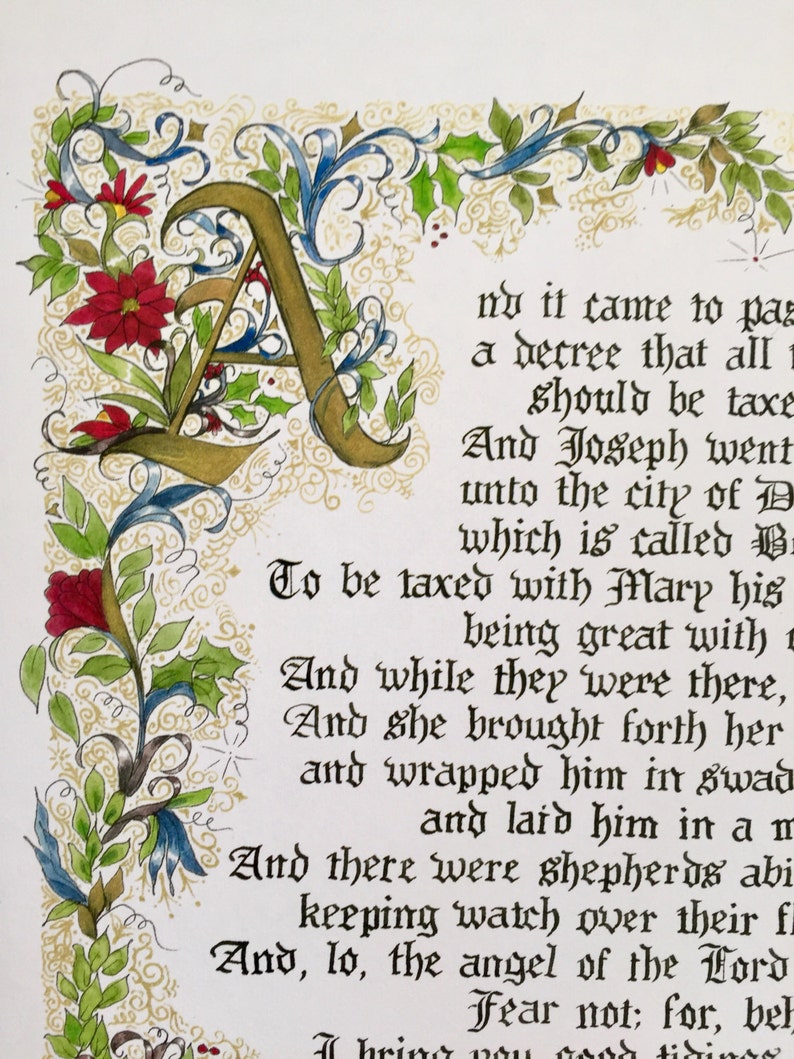 And it came to pas
a decree that all t
should be taxe
And Joseph went
unto the city of D
which is called Be
To be taxed with Mary his
being great with c
And while they were there,
And she brought forth her
and wrapped him in swad
and laid him in a m
And there were shepherds abi
keeping watch over their fl
And, lo, the angel of the Lord
Fear not: for, beh
I bring you good tidings